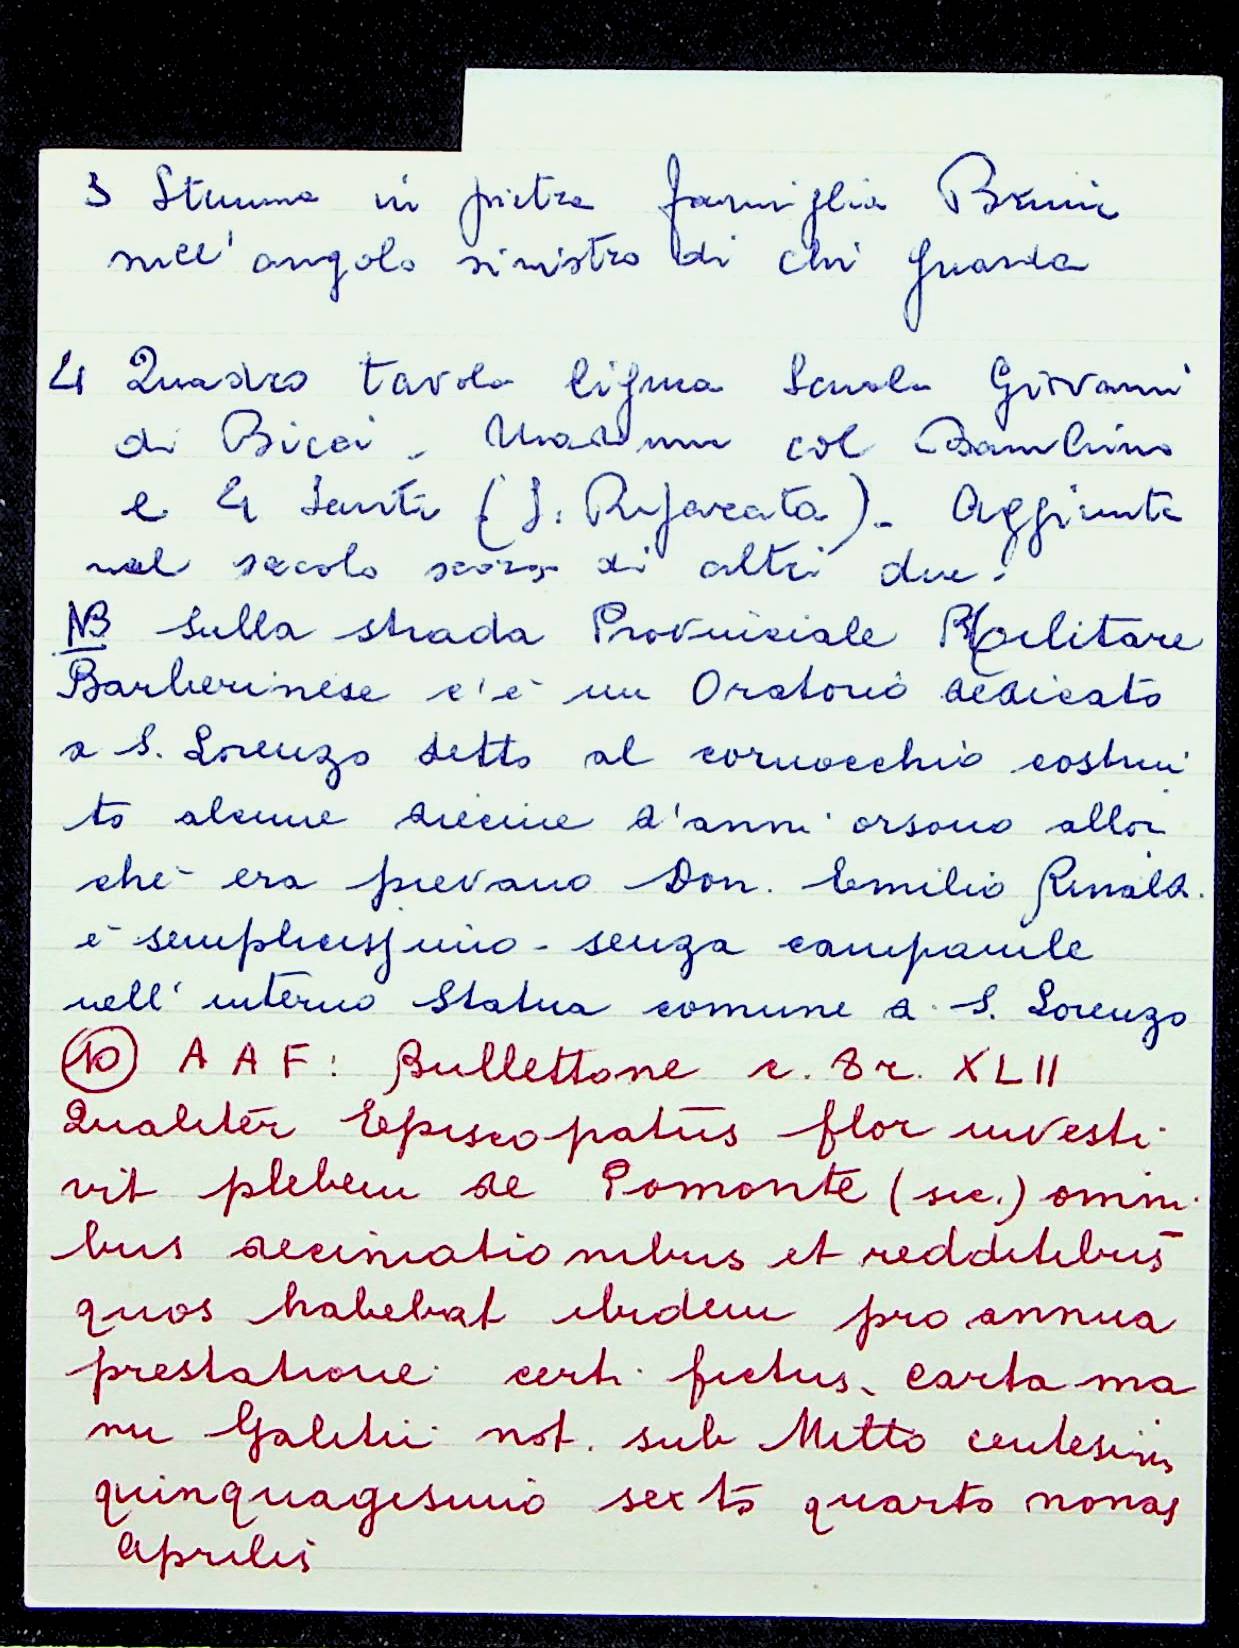 3 Stemma in pietra famiglia Bruni
nell' angolo sinistro di chi guarda
4 Quadro tavola lignea Scuola Giovanni
di Bicci - Madonna col Bambino
e 4 Santi (S. Reparata). Aggiunta
nel secolo scorso di altri due.
NB Sulla strada Provinciale Militare
Barberinese c'è un Oratorio dedicato
a S. Lorenzo detto al cornocchio costrui
to alcune diecine d'anni orsono allor
chè era pievano Don. Emilio Rinaldi.
è semplicissimo - senza campanile
nell' interno Statua comune a S. Lorenzo
10 A A F: Bullettone c. 8 r. XLII
Qualiter Episcopatus flor investi
vit plebem de Pomonte (sic.) omni
bus decimationibus et redditibus
quos habebat ibidem pro annua
prestatione certi fictus. Carta ma
nu Galitii not. sub Mitto centesimo
quinquagesimo sexto quarto nonas
Aprilis